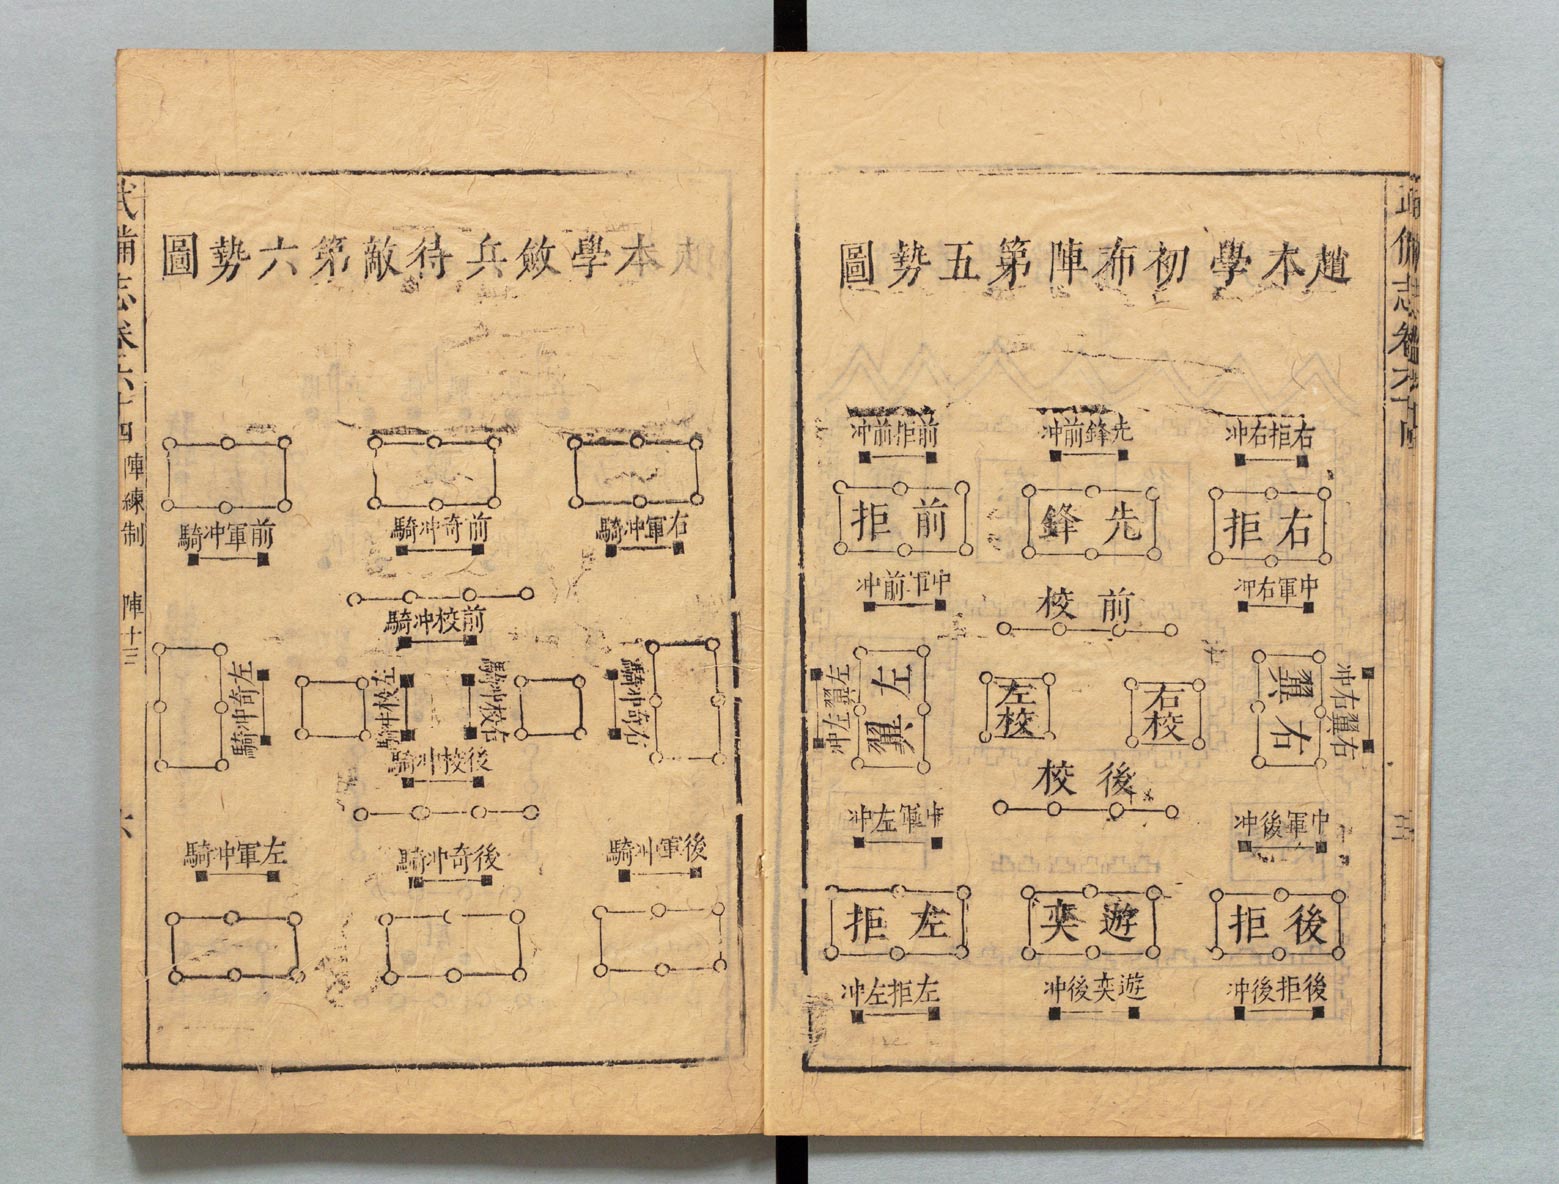 趙本學初布陣第五勢圖
右拒右冲
先鋒前冲
前拒前冲
右拒
先鋒
前拒
中軍右冲
中軍前冲
前校
右翼
右翼右冲
右校
左校
左翼
左翼左冲
後校
中軍後冲
中軍左冲
後拒
遊奕
左拒
後拒後冲
遊奕後冲
左拒左冲
本學斂兵待敵第六勢圖
右軍冲騎
前奇冲騎
前軍冲騎
前校冲騎
右奇冲騎
右校冲騎
左校冲騎
左奇冲騎
後校冲騎
後軍冲騎
後奇冲騎
左軍冲騎
武備志卷六十四
陣練制
陣十三
六